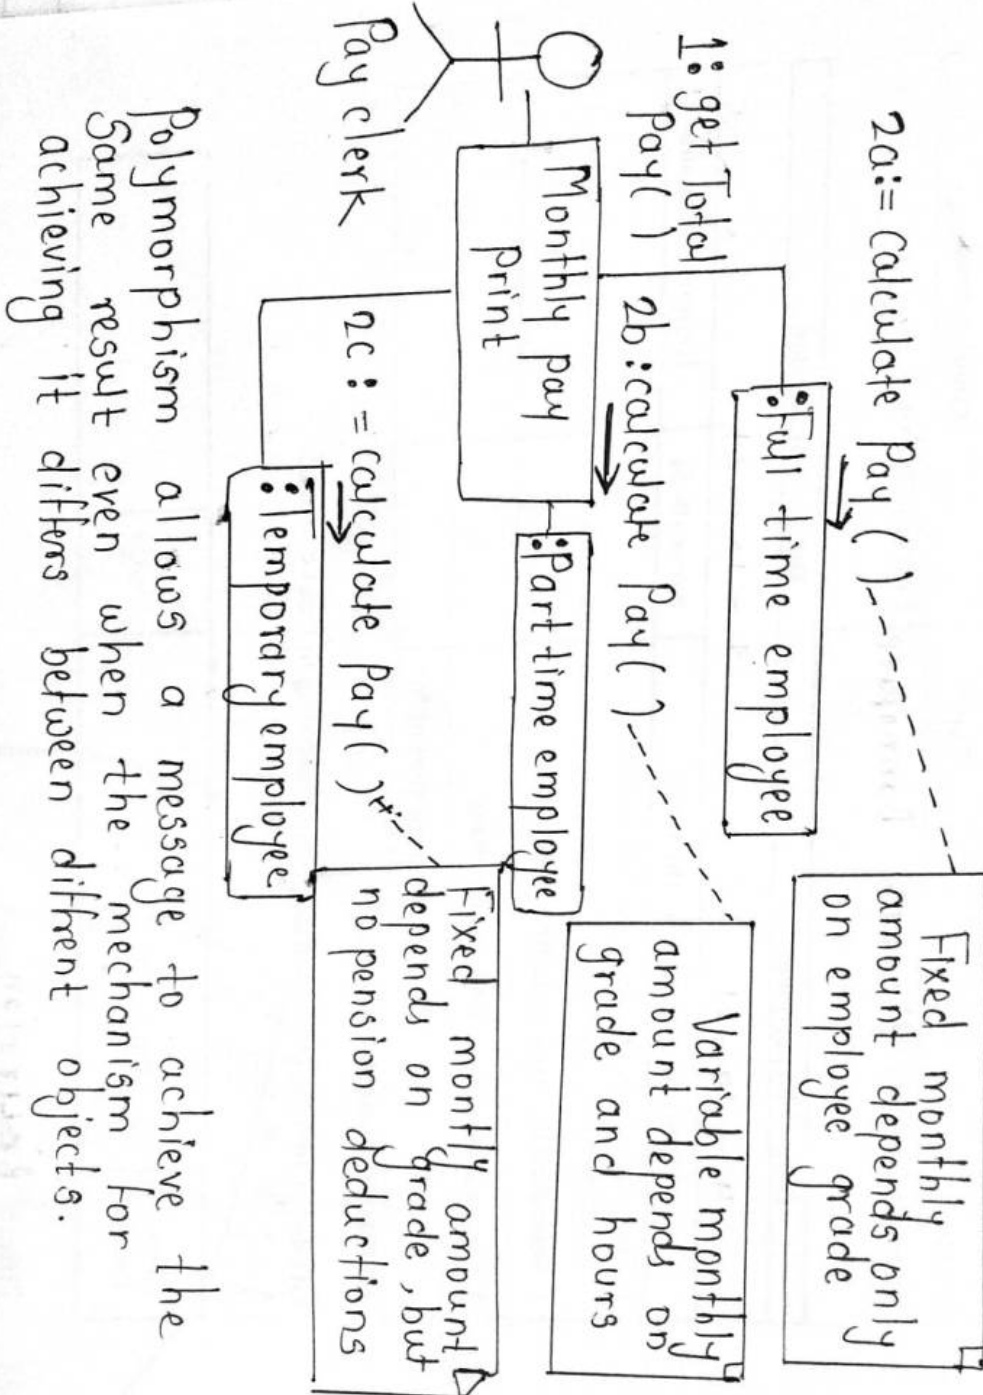 2a:= calculate Pay()
Fixed monthly
amount depends only
on employee grade
: Full time employee
1: get Total
Pay()
2b: calculate Pay()
Variable monthly
amount depends on
grade and hours
Monthly pay
print
: Part time employee
Pay clerk
2c: = calculate Pay()
Fixed montly amount
depends on grade, but
no pension deductions
: Temporary employee
Polymorphism allows a message to achieve the
Same result even when the mechanism for
achieving it differs between diffrent objects.